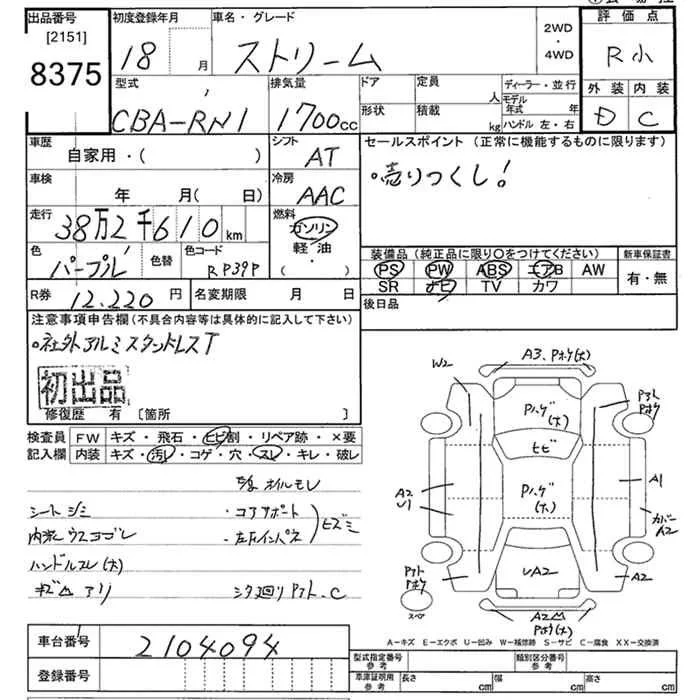 出品番号
[2151]
8375
初度登録年月
18 月
車名・グレード
ストリーム
2WD
・
4WD
評価点
R小
外装 内装
D C
型式
CBA-RN1
排気量
1700cc
ドア
形状
定員 人
積載 kg
ディーラー・並行
モデル年式 年
ハンドル 左・右
車歴
自家用・( )
シフト
AT
車検
年 月( 日)
冷房
AAC
走行
38万2千610km
燃料
ガソリン
軽・油
( ・ )
色
パープル
色替
色コード
RP39P
R券 12.220円
名変期限 月 日
セールスポイント(正常に機能するものに限ります)
・売りつくし!
装備品(純正品に限り○をつけてください)
PS PW ABS エアB AW
SR ナビ TV カワ
新車保証書
有・無
後日品
注意事項申告欄(不具合内容等は具体的に記入して下さい)
・社外アルミスタッドレスT
初出品
修復歴 有[箇所 ]
検査員記入欄
FW キズ・飛石・ヒビ割・リペア跡・×要
内装 キズ・汚レ・コゲ・穴・スレ・キレ・破レ
オイルモレ
シートシミ
・コアサポート
内装ウスヨゴレ
・左Fインパネ
ヒズミ
ハンドルスレ(大)
アリ
シタ廻りアト.C
W2
A3、Pボケ(大)
Pハゲ(大)
ヒビ
Pハゲ(大)
Pアト
Pボケ
A2
U1
A1
カバーA2
Pアト
Pボケ
スペア
A2
UA2
A2
A2凹
Pボケ(大)
A-キズ E-エクボ U-凹み W-補修跡 S-サビ C-腐食 XX-交換済
車台番号 2104094
登録番号
型式指定番号 参考
類別区分番号 参考
車庫証明用 参考
長さ cm
幅 cm
高さ cm